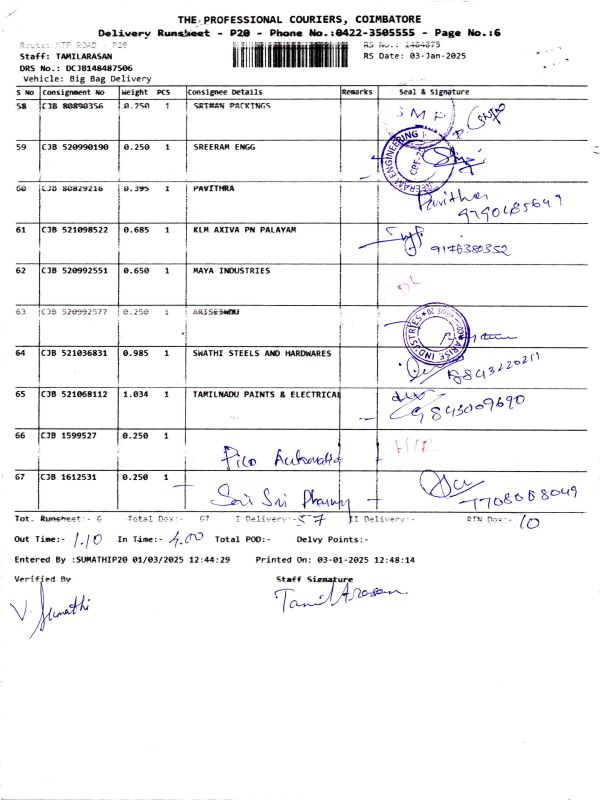 THE PROFESSIONAL COURIERS, COIMBATORE
Delivery Runsheet - P20 - Phone No.:0422-3505555 - Page No.:6
Route: MTP ROAD - P20 RS No.: 1484875
Staff: TAMILARASAN RS Date: 03-Jan-2025
DRS No.: DCJB148487506
Vehicle: Big Bag Delivery
S No Consignment No Weight PCS Consignee Details Remarks Seal & Signature
58 CJB 80890356 0.750 1 SRIMAN PACKINGS SMP
59 CJB 520990190 0.250 1 SREERAM ENGG
60 CJB 80829216 0.395 1 PAVITHRA Pavithra
61 CJB 521098522 0.685 1 KLM AXIVA PN PALAYAM 9176380352
62 CJB 520992551 0.650 1 MAYA INDUSTRIES
63 CJB 520992577 0.250 1 ARISE INDUSTRIES
64 CJB 521036831 0.985 1 SWATHI STEELS AND HARDWARES
65 CJB 521068112 1.034 1 TAMILNADU PAINTS & ELECTRICAL 9843009690
66 CJB 1599527 0.250 1 Pico
67 CJB 1612531 0.250 1 Sri Pharmy
Tot. Runsheet:- 6 Total Dox:- 67 I Delivery:- 57 II Delivery:- RTN Dox:- 10
Out Time:- 1.10 In Time:- 4.00 Total POD:- Delvy Points:-
Entered By :SUMATHIP20 01/03/2025 12:44:29 Printed On: 03-01-2025 12:48:14
Verified By Staff Signature
V. Sumathi TamilArasan.